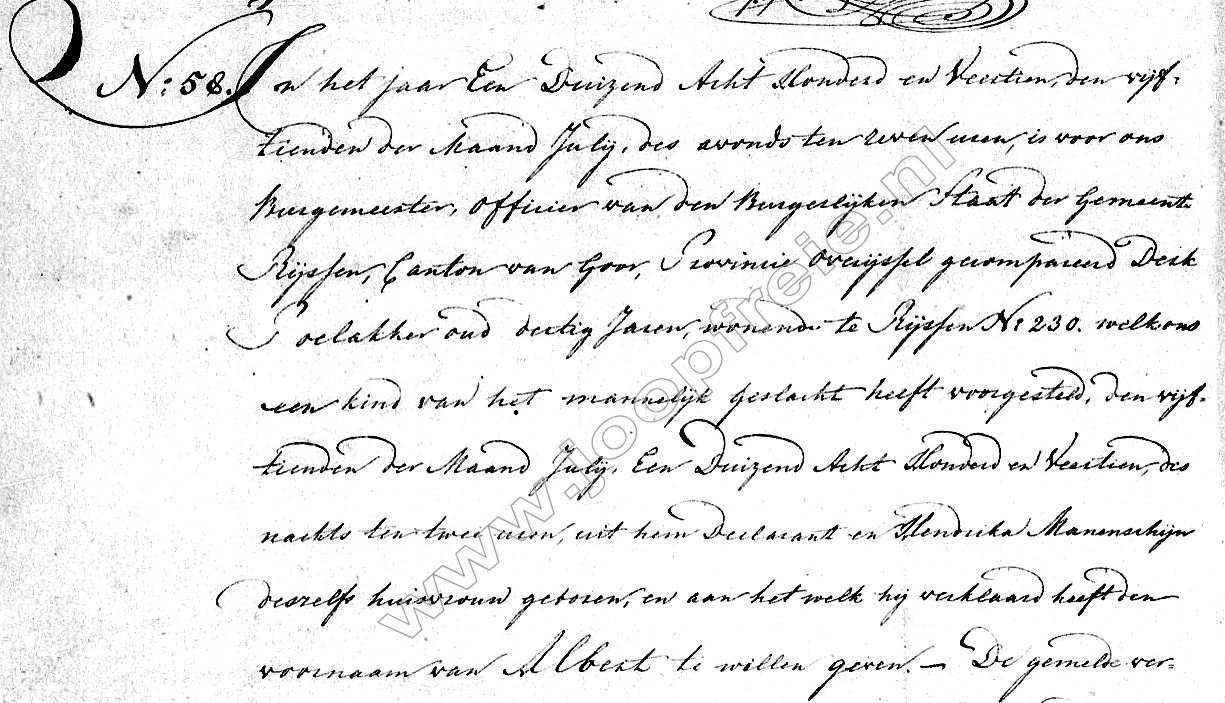 N: 58. In het jaar Een Duizend Acht Honderd en Veertien, den vijf=
tienden der Maand July, des avonds ten zeven uren, is voor ons
Burgemeester, Officier van den Burgerlijken Staat der Gemeente
Rijssen, Canton van Goor, Provincie Overijssel gecompareerd Derk
Poelakker oud dertig Jaren, wonende te Rijssen No 230. welk ons
een kind van het mannelijk geslacht heeft voorgesteld, den vijf=
tienden der Maand July, Een Duizend Acht Honderd en Veertien, des
nachts ten twee uren, uit hem Declarant en Hendrika Manenschijn
deszelfs huisvrouw geboren, en aan het welk hij verklaard heeft den
voornaam van Albert te willen geven. — De gemelde ver=
www.joopfreie.nl